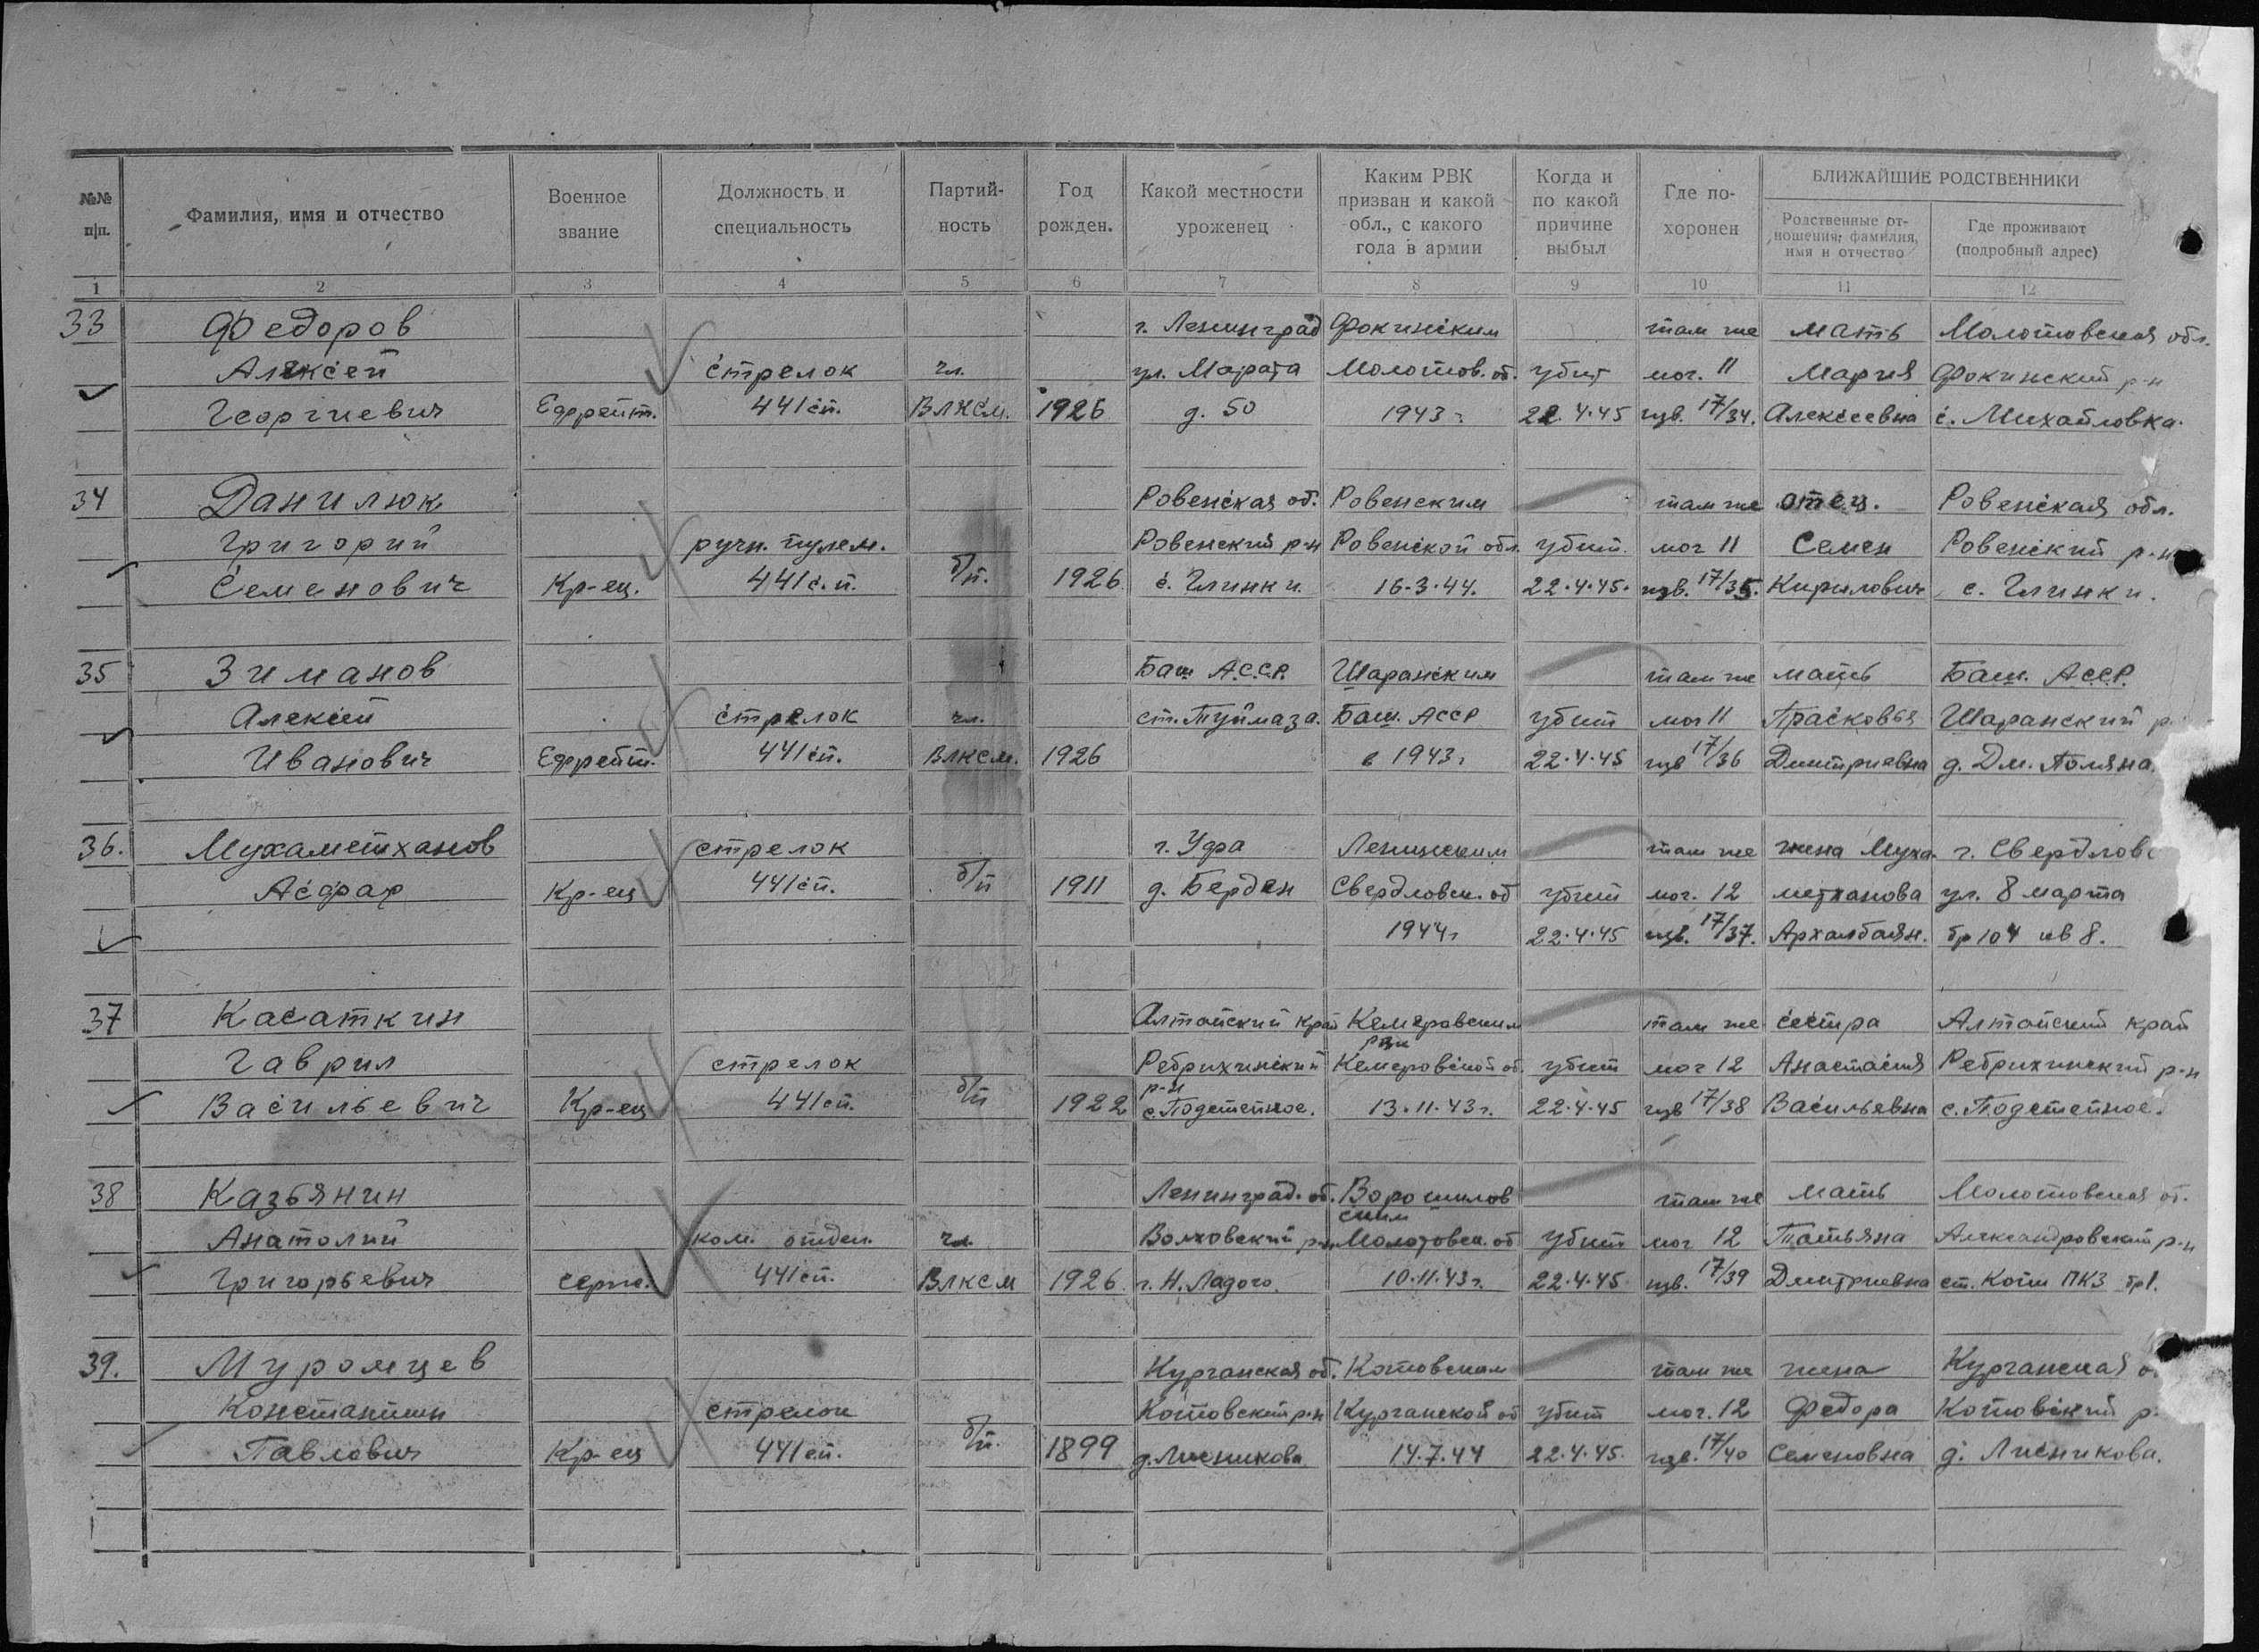 №№ п|п.
Фамилия, имя и отчество
Военное звание
Должность и специальность
Партий-ность
Год рожден.
Какой местности уроженец
Каким РВК призван и какой обл., с какого года в армии
Когда и по какой причине выбыл
Где по-хоронен
БЛИЖАЙШИЕ РОДСТВЕННИКИ
Родственные от-ношения, фамилия, имя и отчество
Где проживают (подробный адрес)
1 2 3 4 5 6 7 8 9 10 11 12
33 Федоров г. Ленинград Фокинским там же мать Молотовская обл.
Алексей стрелок чл. ул. Марата Молотов. об. убит мог. 11 Мария Фокинский р-н
Георгиевич Ефрейт. 441 сп. ВЛКСМ. 1926 д. 50 1943 г 22.4.45 изв. 17/34. Алексеевна с. Михайловка.
34 Данилюк Ровенская об. Ровенским там же отец. Ровенская обл.
Григорий ручн. пулем. Ровенский р-н Ровенской обл. убит. мог 11 Семен Ровенский р-н
Семенович Кр-ец. 441 с.п. б/п. 1926 с. Глинки. 16.3.44. 22.4.45. изв. 17/35. Кирилович с. Глинки.
35 Зиманов Баш А.С.С.Р. Шаранским там же мать Баш. АССР.
Алексей стрелок чл. ст. Туймаза. Баш. АССР убит мог 11 Прасковья Шаранский р-
Иванович Ефрейт. 441 сп. ВЛКСМ. 1926 в 1943 г 22.4.45 изв 17/36 Дмитриевна д. Дм. Поляна.
36. Мухаметханов стрелок г. Уфа Ленинским там же жена Муха- г. Свердловс
Асфар Кр-ец 441 сп. б/п 1911 д. Берден Свердловск. об убит мог. 12 метханова ул. 8 марта
1944 г 22.4.45 изв. 17/37. бр 104 кв 8.
37 Касаткин Алтайский край Кемеровским там же сестра Алтайский край
Гаврил стрелок Ребрихинский Кемеровской об. убит мог 12 Анастасия Ребрихинский р-н
Васильевич Кр-ец 441 сп. б/п 1922 р-н с. Подстепное. 13.11.43 г. 22.4.45 изв 17/38 Васильевна с. Подстепное.
38 Казьянин Ленинград. об. Ворошилов там же мать Молотовская об.
Анатолий ком. отдел. чл. Волховский р-н ским Молотовск. об убит мог 12 Татьяна Александровский р-н
Григорьевич серж. 441 сп. ВЛКСМ 1926. г. Н. Ладого. 10.11.43 г. 22.4.45 изв. 17/39 Дмитриевна ст. Копи ПКЗ бр 1.
39. Муромцев Курганская об. Котовским там же жена Курганская о
Константин стрелок Котовский р-н Курганской об убит мог. 12 Федора Котовский р-
Павлович Кр-ец 441 сп. б/п. 1899 д. Лисникова 14.7.44 22.4.45. изв. 17/40 Семеновна д. Лисникова.